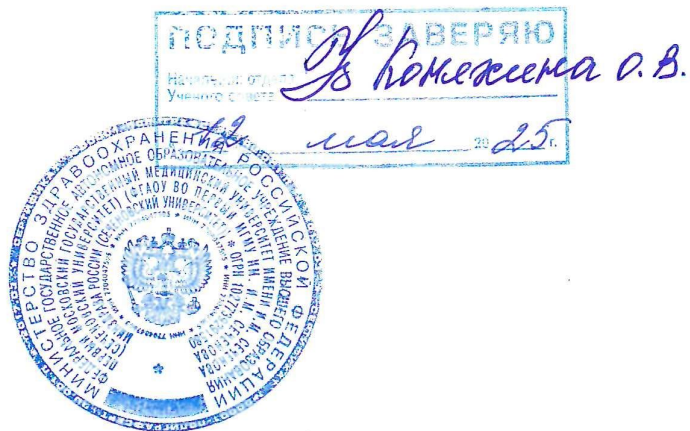 ПОДПИСЬ ЗАВЕРЯЮ
Начальник отдела
Ученого совета
О.В.
12 мая 2025г.
МИНИСТЕРСТВО ЗДРАВООХРАНЕНИЯ РОССИЙСКОЙ ФЕДЕРАЦИИ
ФЕДЕРАЛЬНОЕ ГОСУДАРСТВЕННОЕ АВТОНОМНОЕ ОБРАЗОВАТЕЛЬНОЕ УЧРЕЖДЕНИЕ ВЫСШЕГО ОБРАЗОВАНИЯ
ПЕРВЫЙ МОСКОВСКИЙ ГОСУДАРСТВЕННЫЙ МЕДИЦИНСКИЙ УНИВЕРСИТЕТ ИМЕНИ И.М. СЕЧЕНОВА
(СЕЧЕНОВСКИЙ УНИВЕРСИТЕТ) (ФГАОУ ВО ПЕРВЫЙ МГМУ ИМ. И.М. СЕЧЕНОВА
МИНЗДРАВА РОССИИ (СЕЧЕНОВСКИЙ УНИВЕРСИТЕТ) * ОГРН